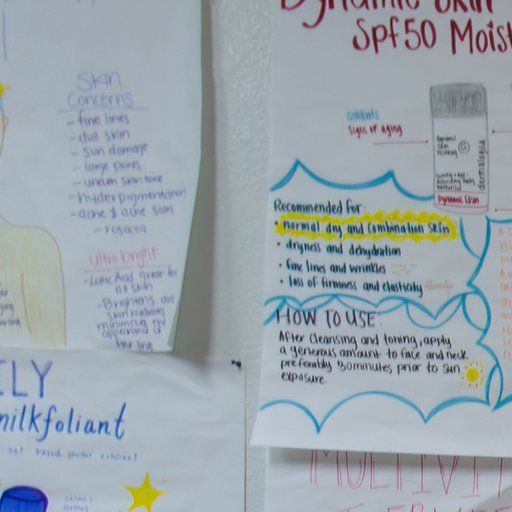 Skin
Concerns
- fine lines
- dull skin
- sun damage
- large pores
- uneven skin tone
- hyderpigmentation
- acne & acne scars
- rosacea
Ultra bright
- Lactic Acid great for
all skin
- Brightens
minimizing the
appearance of
fine lines
ILY
milkfoliant
based powder exfoliant
Dynamic Skin
Spf50 Moist
combats
signs of aging
dermalogica
Dynamic Skin
Recommended for:
• normal dry and combination skin
• dryness and dehydration
• fine lines and wrinkles
• loss of firmness and elasticity
HOW TO USE:
After cleansing and toning, apply
a generous amount to face and neck
preferably 30 minutes prior to sun
exposure
MULTIVIT